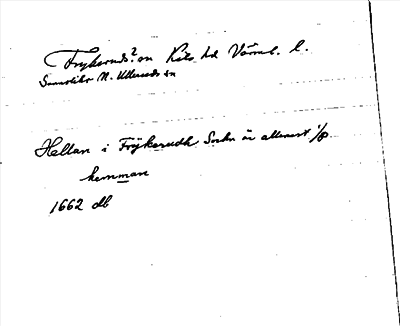 Frykeruds? sn Kils hd Värml. l.
N. Ulleruds sn
Hellan i Frÿkerudh Sockn är allenast 1/8
hemman
1662 db